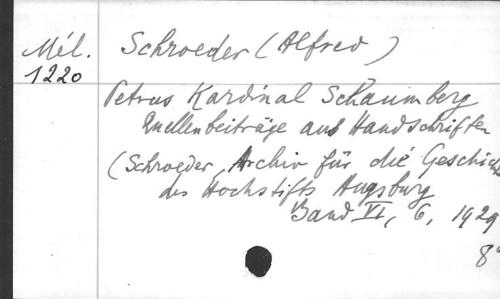 Mél.
1220
Schroeder (Alfred)
Petrus Kardinal Schaumberg
Quellenbeiträge aus Handschriften
(Schroeder, Archiv für die Geschichte
des Hochstifts Augsburg
Band VI, 6, 1929
8°